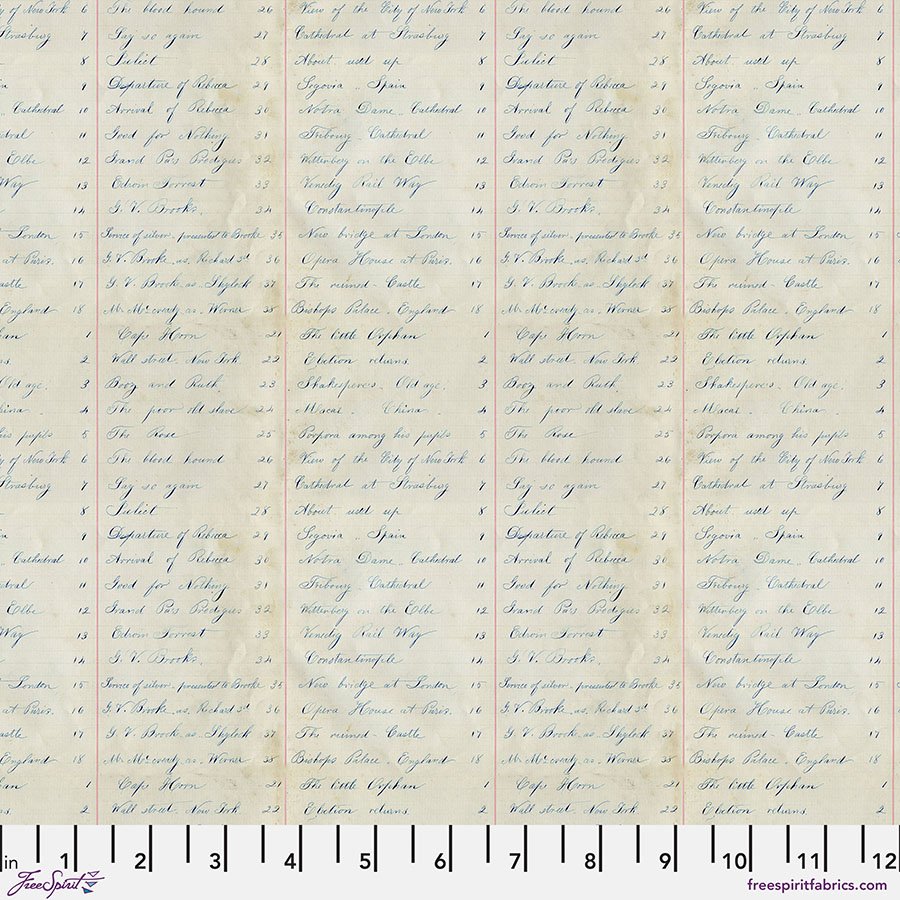 y of New York 6 The blood hound 26 View of the City of New York 6 The blood hound 26 View of the City of New York 6
Strasburg 7 Say so again 27 Cathedral at Strasburg 7 Say so again 27 Cathedral at Strasburg 7
8 Juliet 28 About used up 8 Juliet 28 About used up 8
9 Departure of Rebeca 29 Segovia .. Spain 9 Departure of Rebeca 29 Segovia .. Spain 9
Cathedral 10 Arrival of Rebeca 30 Notra Dame .. Cathedral 10 Arrival of Rebeca 30 Notra Dame .. Cathedral 10
dral 11 Good for Nothing 31 Fribourg . Cathedral 11 Good for Nothing 31 Fribourg . Cathedral 11
Elbe 12 Grand Pa's Prodigies 32 Wittenberg on the Elbe 12 Grand Pa's Prodigies 32 Wittenberg on the Elbe 12
Way 13 Edwin Forrest 33 Rail Way 13 Edwin Forrest 33 Rail Way 13
14 G. V. Brooke. 34 Constantinople 14 G. V. Brooke. 34 Constantinople 14
London 15 Service of silver presented to Brooke 35 New bridge at London 15 Service of silver presented to Brooke 35 New bridge at London 15
at Paris. 16 G. V. Brooke. as. Richard 3d 36 Opera House at Paris. 16 G. V. Brooke. as. Richard 3d 36 Opera House at Paris. 16
astle 17 G. V. Brooke as. Shylock 37 The ruined - Castle 17 G. V. Brooke as. Shylock 37 The ruined - Castle 17
England 18 Mr. McCready as. Werner 38 Bishops Palace . England 18 Mr. McCready as. Werner 38 Bishops Palace . England 18
an 1 Cape Horn 21 The little Orphan 1 Cape Horn 21 The little Orphan 1
s. 2 Wall street. New York 22 Election returns. 2 Wall street. New York 22 Election returns. 2
Old age. 3 Booz and Ruth 23 Shakesperes. Old age. 3 Booz and Ruth 23 Shakesperes. Old age. 3
hina . 4 The poor old slave 24 Macai . China . 4 The poor old slave 24 Macai . China . 4
his pupils 5 The Rose 25 Porpora among his pupils 5 The Rose 25 Porpora among his pupils 5
y of New York 6 The blood hound 26 View of the City of New York 6 The blood hound 26 View of the City of New York 6
Strasburg 7 Say so again 27 Cathedral at Strasburg 7 Say so again 27 Cathedral at Strasburg 7
8 Juliet 28 About used up 8 Juliet 28 About used up 8
9 Departure of Rebeca 29 Segovia .. Spain 9 Departure of Rebeca 29 Segovia .. Spain 9
Cathedral 10 Arrival of Rebeca 30 Notra Dame .. Cathedral 10 Arrival of Rebeca 30 Notra Dame .. Cathedral 10
dral 11 Good for Nothing 31 Fribourg . Cathedral 11 Good for Nothing 31 Fribourg . Cathedral 11
Elbe 12 Grand Pa's Prodigies 32 Wittenberg on the Elbe 12 Grand Pa's Prodigies 32 Wittenberg on the Elbe 12
Way 13 Edwin Forrest 33 Rail Way 13 Edwin Forrest 33 Rail Way 13
14 G. V. Brooke. 34 Constantinople 14 G. V. Brooke. 34 Constantinople 14
London 15 Service of silver presented to Brooke 35 New bridge at London 15 Service of silver presented to Brooke 35 New bridge at London 15
at Paris. 16 G. V. Brooke. as. Richard 3d 36 Opera House at Paris. 16 G. V. Brooke. as. Richard 3d 36 Opera House at Paris. 16
astle 17 G. V. Brooke as. Shylock 37 The ruined - Castle 17 G. V. Brooke as. Shylock 37 The ruined - Castle 17
England 18 Mr. McCready as. Werner 38 Bishops Palace . England 18 Mr. McCready as. Werner 38 Bishops Palace . England 18
an 1 Cape Horn 21 The little Orphan 1 Cape Horn 21 The little Orphan 1
s. 2 Wall street. New York 22 Election returns. 2 Wall street. New York 22 Election returns. 2
in 1 2 3 4 5 6 7 8 9 10 11 12
FreeSpirit
freespiritfabrics.com